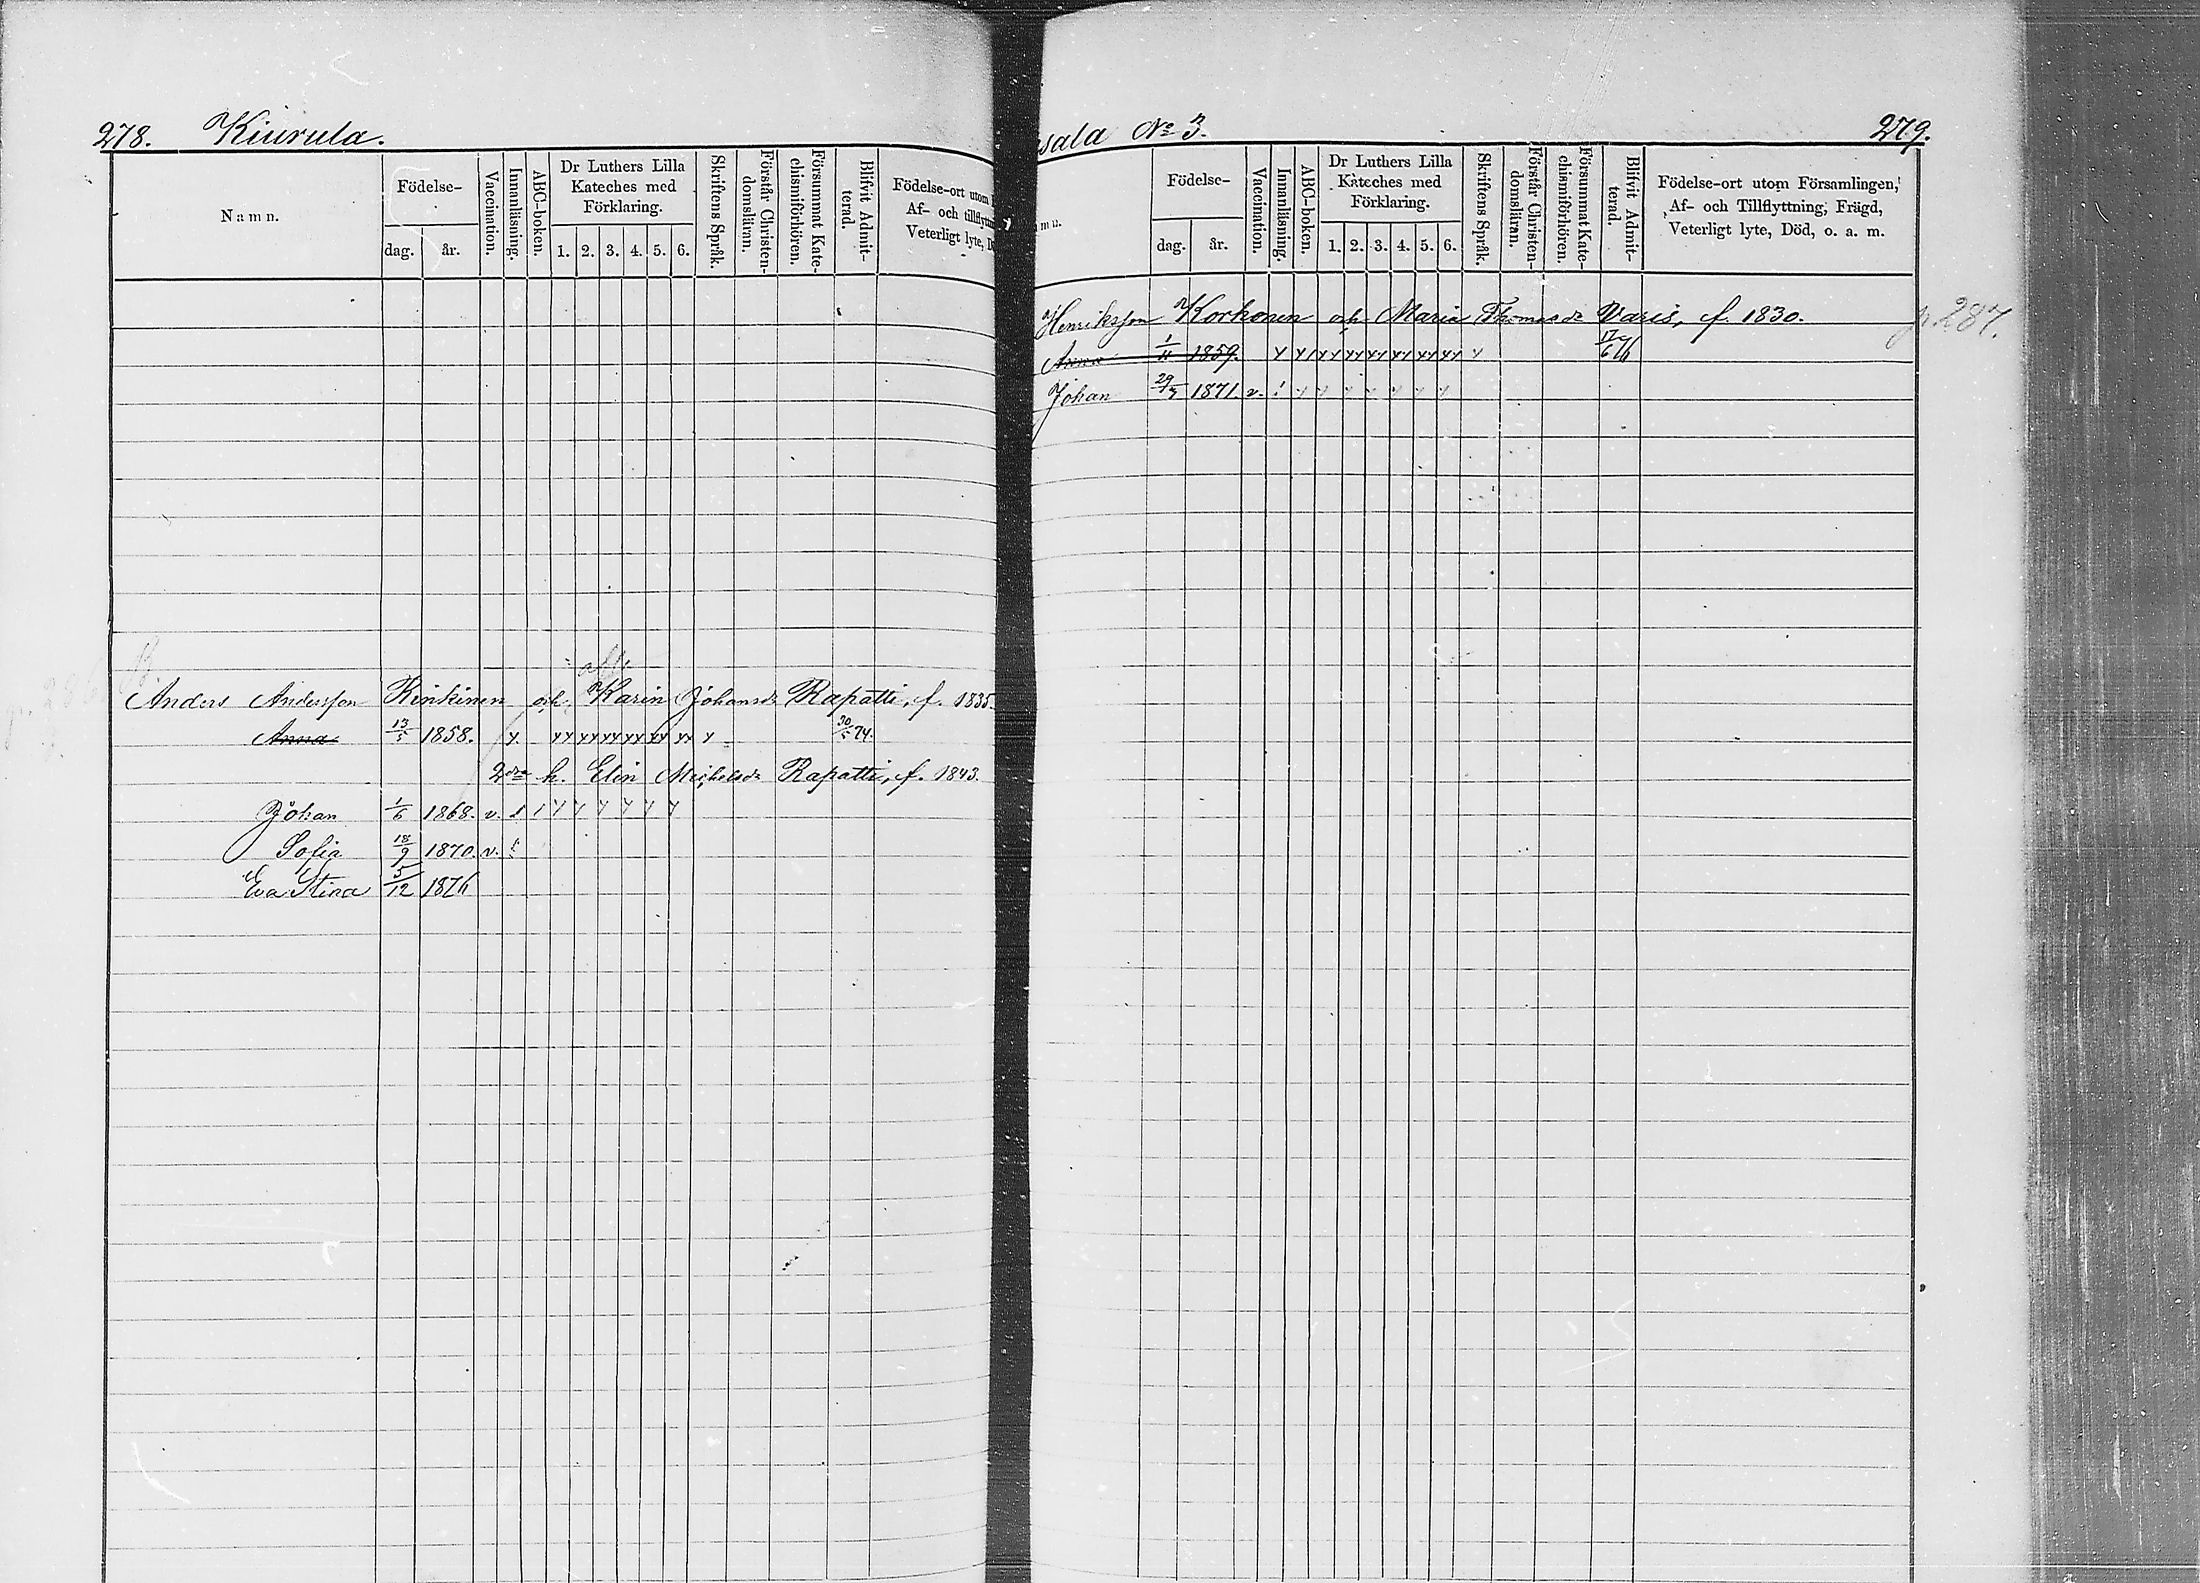 278. Kiurula.
Namn.
Födelse-
dag. år.
Vaccination.
Innanläsning.
ABC-boken.
Dr Luthers Lilla
Kateches med
Förklaring.
1. 2. 3. 4. 5. 6.
Skriftens Språk.
Förstår Christen-
domsläran.
Försummat Kate-
chismiförhören.
Blifvit Admit-
terad.
Födelse-ort utom
Af- och tillflyttn
Veterligt lyte, Dö
Anders Andersson Rinkinen och Karin Johansdr Rapatti, f. 1835.
Anna 13/5 1858. x xx xx xx xx xx xx x 30/5 74.
2dra h. Elin Michelsdr Rapatti, f. 1843.
Johan 1/6 1868. v.
Sofia 18/9 1870. v.
Eva Stina 5/12 1876
sala No 3. 279.
mn.
Födelse-
dag. år.
Vaccination.
Innanläsning.
ABC-boken.
Dr Luthers Lilla
Kateches med
Förklaring.
1. 2. 3. 4. 5. 6.
Skriftens Språk.
Förstår Christen-
domsläran.
Försummat Kate-
chismiförhören.
Blifvit Admit-
terad.
Födelse-ort utom Församlingen,
Af- och Tillflyttning, Frägd,
Veterligt lyte, Död, o. a. m.
Henriksson Korhonen och Maria Thomasdr Varis, f. 1830. p. 287.
Anna 1/11 1859. x x xx xx xx xx xx xx x 17/6 76
Johan 1871. v.